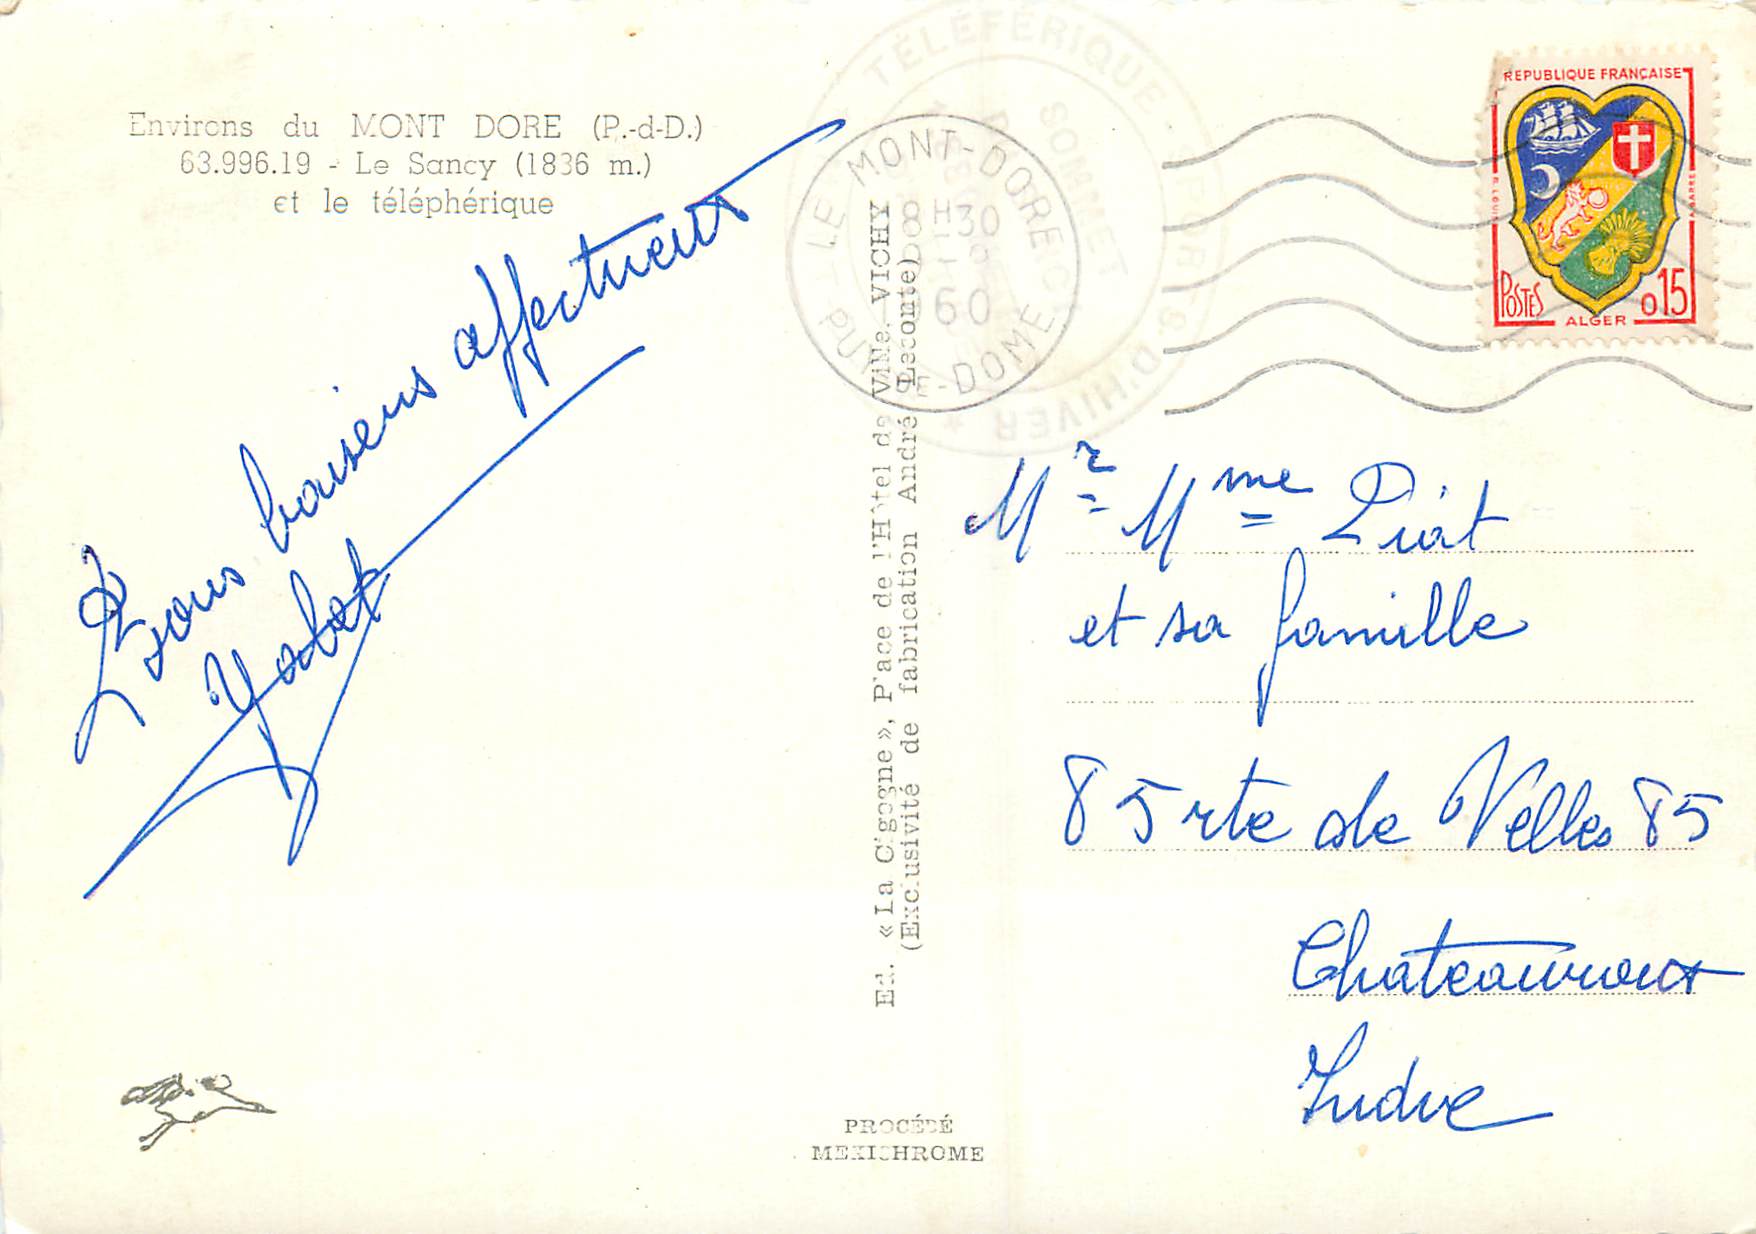 Environs du MONT DORE (P.-d-D.)
63.996.19 - Le Sancy (1836 m.)
et le téléphérique
bons baisers affectueux
Ed. « La Cigogne », Place de l'Hôtel de Ville - VICHY
(Exclusivité de fabrication André Leconte)
PROCÉDÉ
MEXICHROME
TÉLÉFÉRIQUE SPORTS D'HIVER
SOMMET
LE MONT-DORE
8H30
60
PUY-DE-DOME
REPUBLIQUE FRANÇAISE
POSTES
ALGER
0,15
Mr Mme Piat
et sa famille
85 rte de Velles 85
Chateauroux
Indre